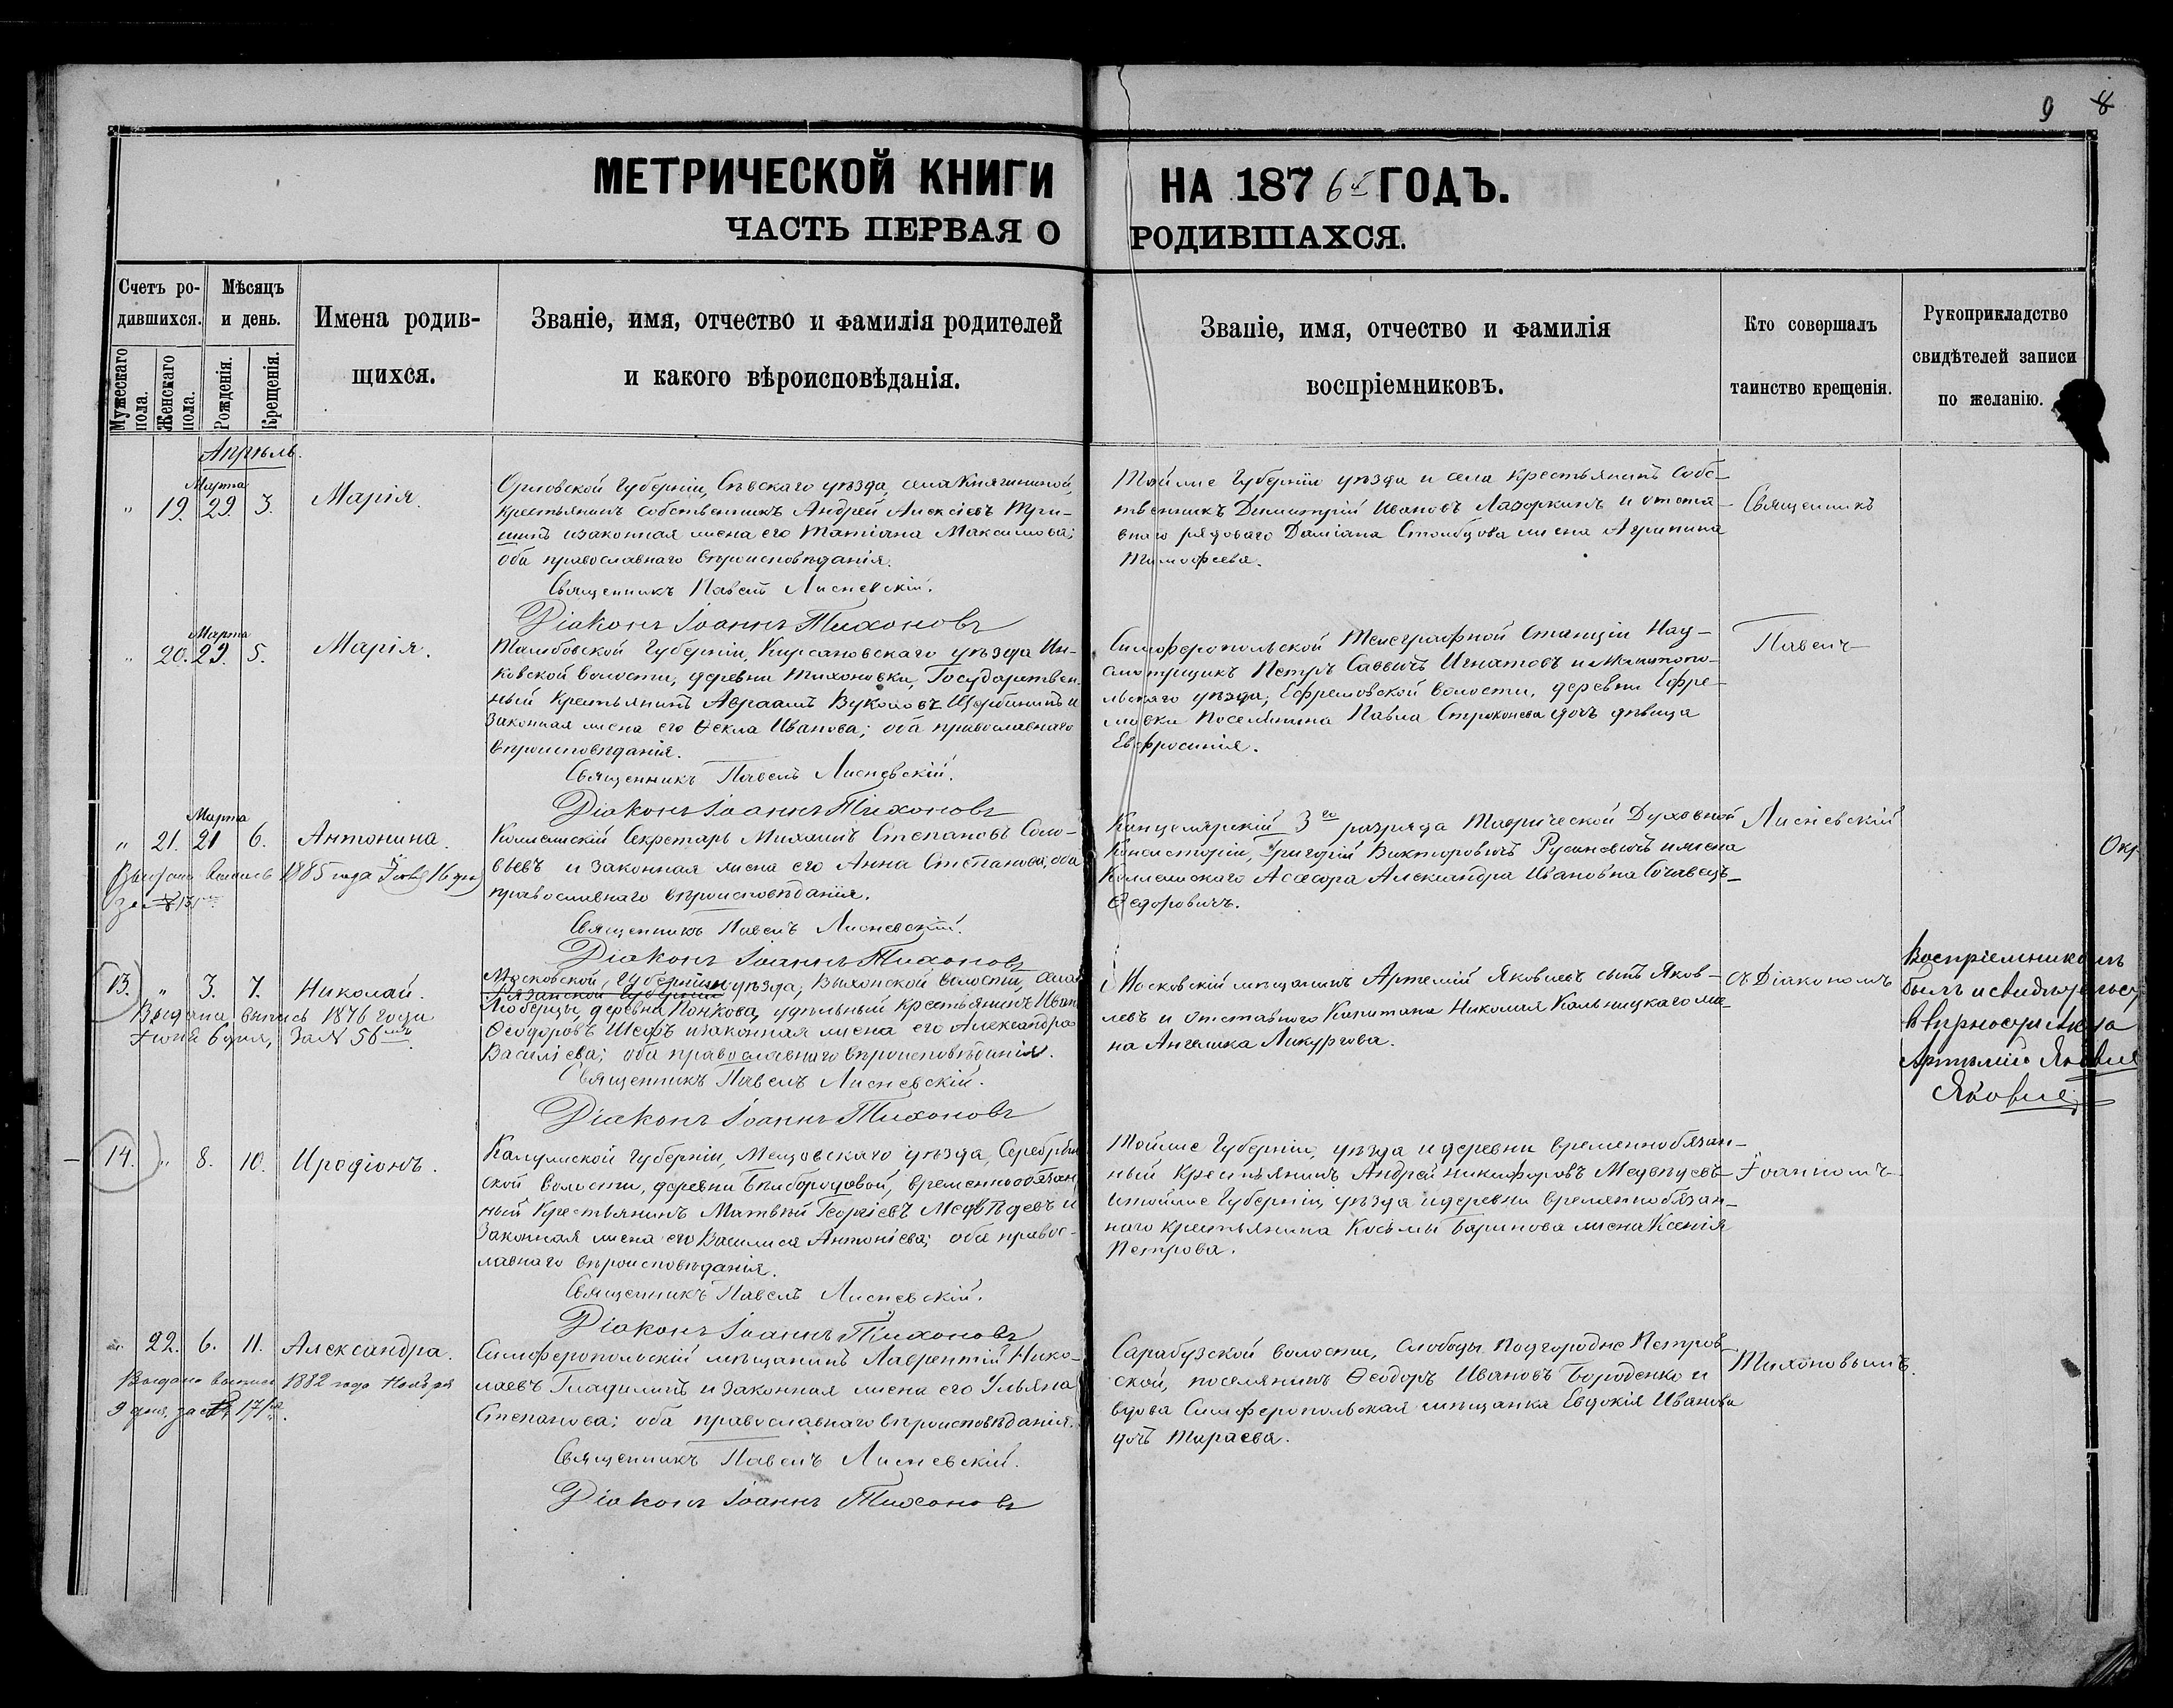 9 8
МЕТРИЧЕСКОЙ КНИГИ НА 1876й ГОДЪ.
ЧАСТЬ ПЕРВАЯ О РОДИВШАХСЯ.
Счетъ ро-
дившихся.
Мужескаго пола.
Женскаго пола.
Мѣсяцъ
и день.
Рожденія.
Крещенія.
Имена родив-
щихся.
Званіе, имя, отчество и фамилія родителей
и какого вѣроисповѣданія.
Званіе, имя, отчество и фамилія
воспріемниковъ.
Кто совершалъ
таинство крещенія.
Рукоприкладство
свидѣтелей записи
по желанію.
Апрѣль.
Марта
" 19. 29. 3. Марія.
Орловской Губерніи, Сѣвскаго уѣзда, села Княгининой,
крестьянинъ собственникъ Андрей Алексіевъ
и законная жена его Татіана Максимова;
оба православнаго вѣроисповѣданія.
Священникъ Павелъ Лисневскій.
Діаконъ Іоаннъ Тихоновъ
Тойже Губерніи уѣзда и села крестьянинъ собс-
твенникъ Димитрій Ивановъ Лазоркинъ и отста-
внаго рядоваго Даміана Столбцова жена Агрипина
Тимофеева.
Священникъ
Марта
" 20. 29. 5. Марія.
Тамбовской Губерніи, Кирсановскаго уѣзда Ин-
ковской волости, деревни Тихоновки, Государствен-
ный крестьянинъ Авраамъ Вуколовъ Щербининъ и
законная жена его Ѳекла Иванова; оба православнаго
вѣроисповѣданія.
Священникъ Павелъ Лисневскій.
Діаконъ Іоаннъ Тихоновъ
Симферопольской Телеграфной Станціи Над-
смотрщикъ Петръ Саввичъ Игнатовъ и Мелитопо-
льскаго уѣзда, Ефремовской волости, деревни Ефре-
мовки поселянина Павла дочь дѣвица
Евфросинія.
Павелъ
Марта
" 21. 21 6. Антонина.
Выдана выпись 1885 года 16 дня
за № 135
Коллежскій Секретарь Михаилъ Степановъ Соло-
вьевъ и законная жена его Анна Степанова; оба
православнаго вѣроисповѣданія.
Священникъ Павелъ Лисневскій.
Діаконъ Іоаннъ Тихоновъ
Канцелярскій 3го разряда Таврической Духовной
Консисторіи, Григорій Викторовичъ Русиневичъ и жена
Коллежскаго Асесора Александра Ивановна
Ѳедоровичъ.
Лисневскій
Окр
13. " 3. 7. Николай.
Выдана выпись 1876 года
Іюня 6 дня, за № 56
Московской Губерніи уѣзда, Выхонской волости, села
Рязанской Губерніи
Люберцы, деревня Понкова, удѣльный крестьянинъ Иванъ
Ѳеодоровъ Шефъ и законная жена его Александра
Василіева; оба православнаго вѣроисповѣданія.
Священникъ Павелъ Лисневскій.
Діаконъ Іоаннъ Тихоновъ
Московскій мѣщанинъ Артемій Яковлевъ сынъ Яков-
левъ и отставнаго Капитана Николая Кальницкаго же-
на Ангелика Ликургова.
съ Діакономъ
Воспріемникомъ
былъ и свидѣтельст
вѣрность
Артемій Яковле
Яковле
14. " 8. 10. Иродіонъ.
Калужской Губерніи, Мещовскаго уѣзда, Серебрян-
ской волости, деревни Бѣлобородовой, временнообязан-
ный крестьянинъ Матвѣй Георгіевъ Медвѣдевъ и
законная жена его Василиса Антоніева; оба правос-
лавнаго вѣроисповѣданія.
Священникъ Павелъ Лисневскій.
Діаконъ Іоаннъ Тихоновъ
Тойже Губерніи, уѣзда и деревни временнобязан-
ный крестьянинъ Андрей Никифоровъ Медвѣдевъ
и тойже Губерніи, уѣзда и деревни временнобязан-
наго крестьянина Косьмы Баринова жена Ксенія
Петрова.
Іоанномъ
" 22. 6. 11. Александра.
Выдана выпись 1882 года Ноября
9 дня, за № 171
Симферопольскій мѣщанинъ Лаврентій Нико-
лаевъ Гладилинъ и законная жена его Ульяна
Степанова; оба православнаго вѣроисповѣданія.
Священникъ Павелъ Лисневскій.
Діаконъ Іоаннъ Тихоновъ
Сарабузской волости, слободы Подгородне Петров-
ской, поселянинъ Ѳеодоръ Ивановъ Бороденко и
вдова Симферопольская мѣщанка Евдокія Иванова
дочь Тараева.
Тихоновымъ.